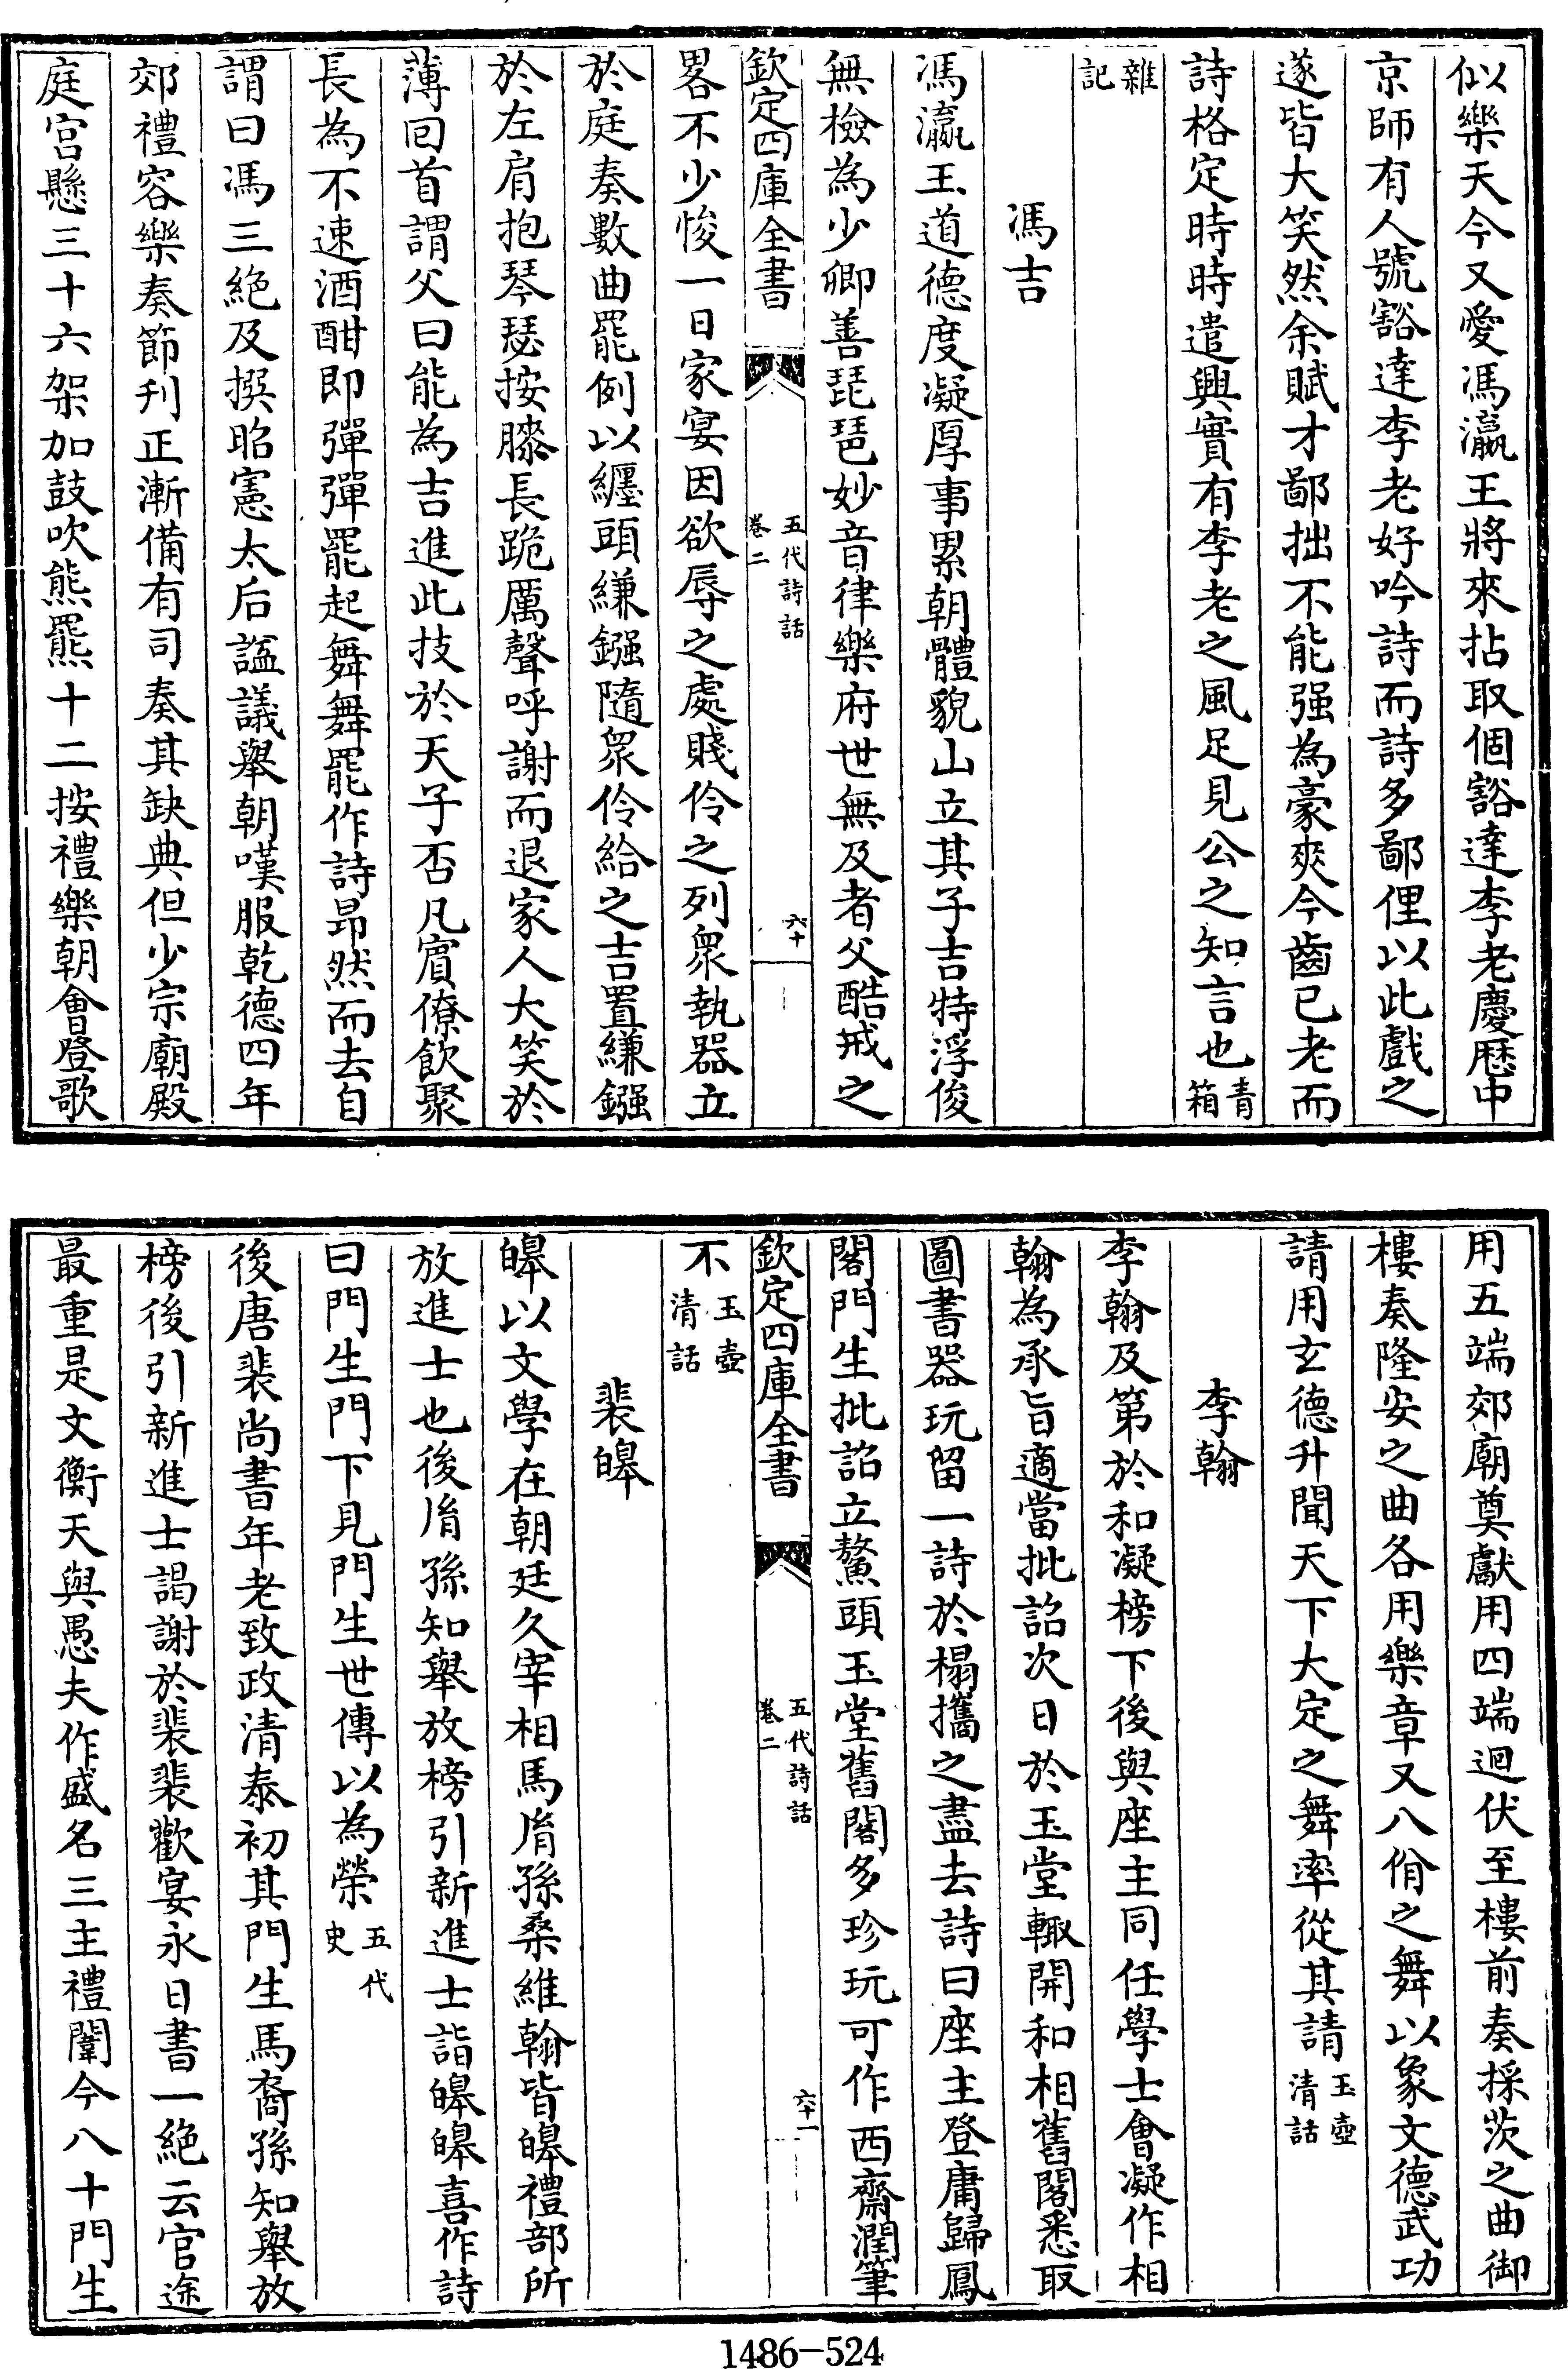 似樂天今又愛馮瀛王將來拈取個豁達李老慶歴中
京師有人號豁達李老好吟詩而詩多鄙俚以此戲之
遂皆大笑然余賦才鄙拙不能强為豪爽今齒已老而
詩格定時時遣興實有李老之風足見公之知言也青箱
雜記
馮吉
馮瀛王道德度凝厚事累朝體貌山立其子吉特浮俊
無檢為少卿善琵琶妙音律樂府世無及者父酷戒之
欽定四庫全書
五代詩話
卷二
六十
畧不少悛一日家宴因欲辱之處賤伶之列衆執器立
於庭奏數曲罷例以纏頭縑鏹隨衆伶給之吉置縑鏹
於左肩抱琴瑟按膝長跪厲聲呼謝而退家人大笑於
薄回首謂父曰能為吉進此技於天子否凡賔僚飲聚
長為不速酒酣即彈彈罷起舞舞罷作詩昂然而去自
謂曰馮三絶及撰昭憲太后諡議舉朝嘆服乾德四年
郊禮容樂奏節刋正漸備有司奏其缺典但少宗廟殿
庭宫懸三十六架加鼓吹熊羆十二按禮樂朝會登歌
用五端郊廟奠獻用四端迴伏至樓前奏採茨之曲御
樓奏隆安之曲各用樂章又八佾之舞以象文德武功
請用玄德升聞天下大定之舞率從其請玉壺清話
李翰
李翰及第於和凝榜下後與座主同任學士會凝作相
翰為承旨適當批詔次日於玉堂輙開和相舊閣悉取
圖書器玩留一詩於榻攜之盡去詩曰座主登庸歸鳳
閣門生批詔立鰲頭玉堂舊閣多珍玩可作西齋潤筆
欽定四庫全書
五代詩話
卷二
六十一
不玉壺清話
裴皥
皥以文學在朝廷久宰相馬𦙍孫桑維翰皆皥禮部所
放進士也後𦙍孫知舉放榜引新進士詣皥皥喜作詩
曰門生門下見門生世傳以為榮五代史
後唐裴尚書年老致政清泰初其門生馬裔孫知舉放
榜後引新進士謁謝於裴裴歡宴永日書一絶云官途
最重是文衡天與愚夫作盛名三主禮闈今八十門生
1486-524